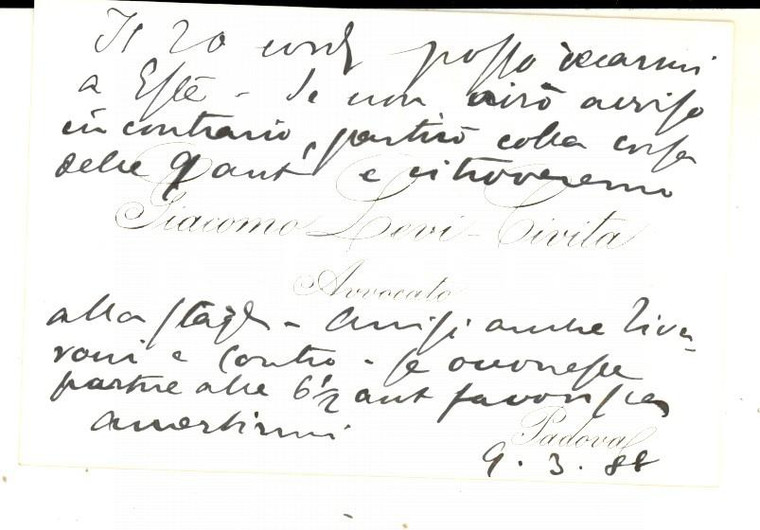 Il 20 corr posso recarmi
a Este - Se non avrò avviso
in contrario, partirò colla corsa
delle 9 ant e ci troveremo
Giacomo Levi-Civita
Avvocato
alla - anche
e - Se
partire alle 6 1/2 ant favorisca
avvertirmi
Padova
9.3.88